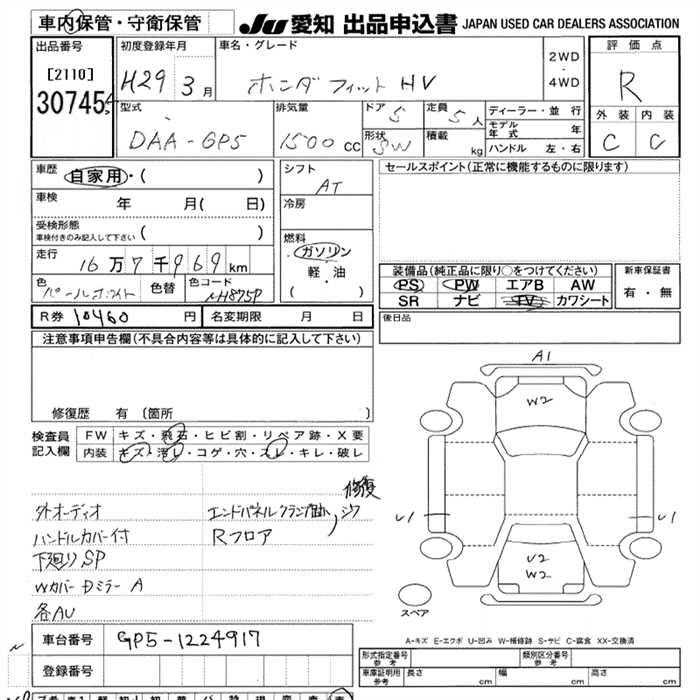 車内保管・守衛保管
JU 愛知 出品申込書 JAPAN USED CAR DEALERS ASSOCIATION
出品番号
[2110]
30745
初度登録年月
H29 3月
車名・グレード
ホンダ フィット HV
2WD
・
4WD
評価点
R
外装 内装
C C
型式
DAA-GP5
排気量
1500 cc
ドア 5
形状 SW
定員 5人
積載 kg
ディーラー・並行
モデル年式 年
ハンドル 左・右
車歴 自家用・( )
車検 年 月( 日)
受検形態
車検付きのみ記入して下さい ( )
走行 16万7千969km
色 パールホワイト 色替 色コード NH875P
シフト
AT
冷房
燃料
ガソリン
軽・油
( )
セールスポイント(正常に機能するものに限ります)
装備品(純正品に限り○をつけてください)
PS PW エアB AW
SR ナビ TV カワシート
新車保証書
有・無
R券 10460 円 名変期限 月 日
後日品
注意事項申告欄(不具合内容等は具体的に記入して下さい)
修復歴 有 (箇所
検査員記入欄
FW キズ・飛石・ヒビ割・リペア跡・X要
内装 キズ・汚レ・コゲ・穴・スレ・キレ・破レ
修復
外オーディオ
ハンドルカバー付
下廻りSP
Wカバー DミラーA
各AU
Rフロア
A1
W2
U1
U1
U2
W2
スペア
A-キズ E-エクボ U-凹み W-補修跡 S-サビ C-腐食 XX-交換済
車台番号 GP5-1224917
登録番号
形式指定番号
参考
類区分番号
参考
車庫証明用
参考
長さ cm 幅 cm 高さ cm